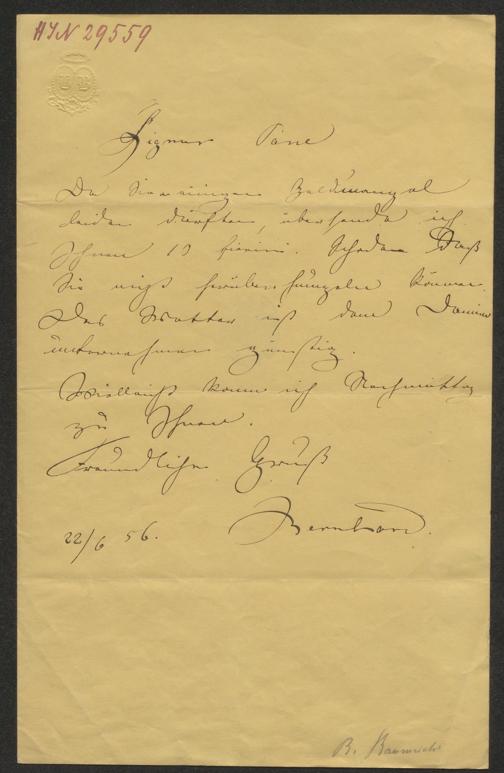 HIN 29559
Signor
Da Sie einigen Geldmangel
leiden dürften, übersende ich
Ihnen 10 fiorini. Schade daß
Sie nicht herüber können.
Das Wetter ist dem
unternehmen günstig.
Vielleicht komm ich Nachmittag
zu Ihnen.
Freundliche Gruß
Bernhard.
22/6 56.
B.